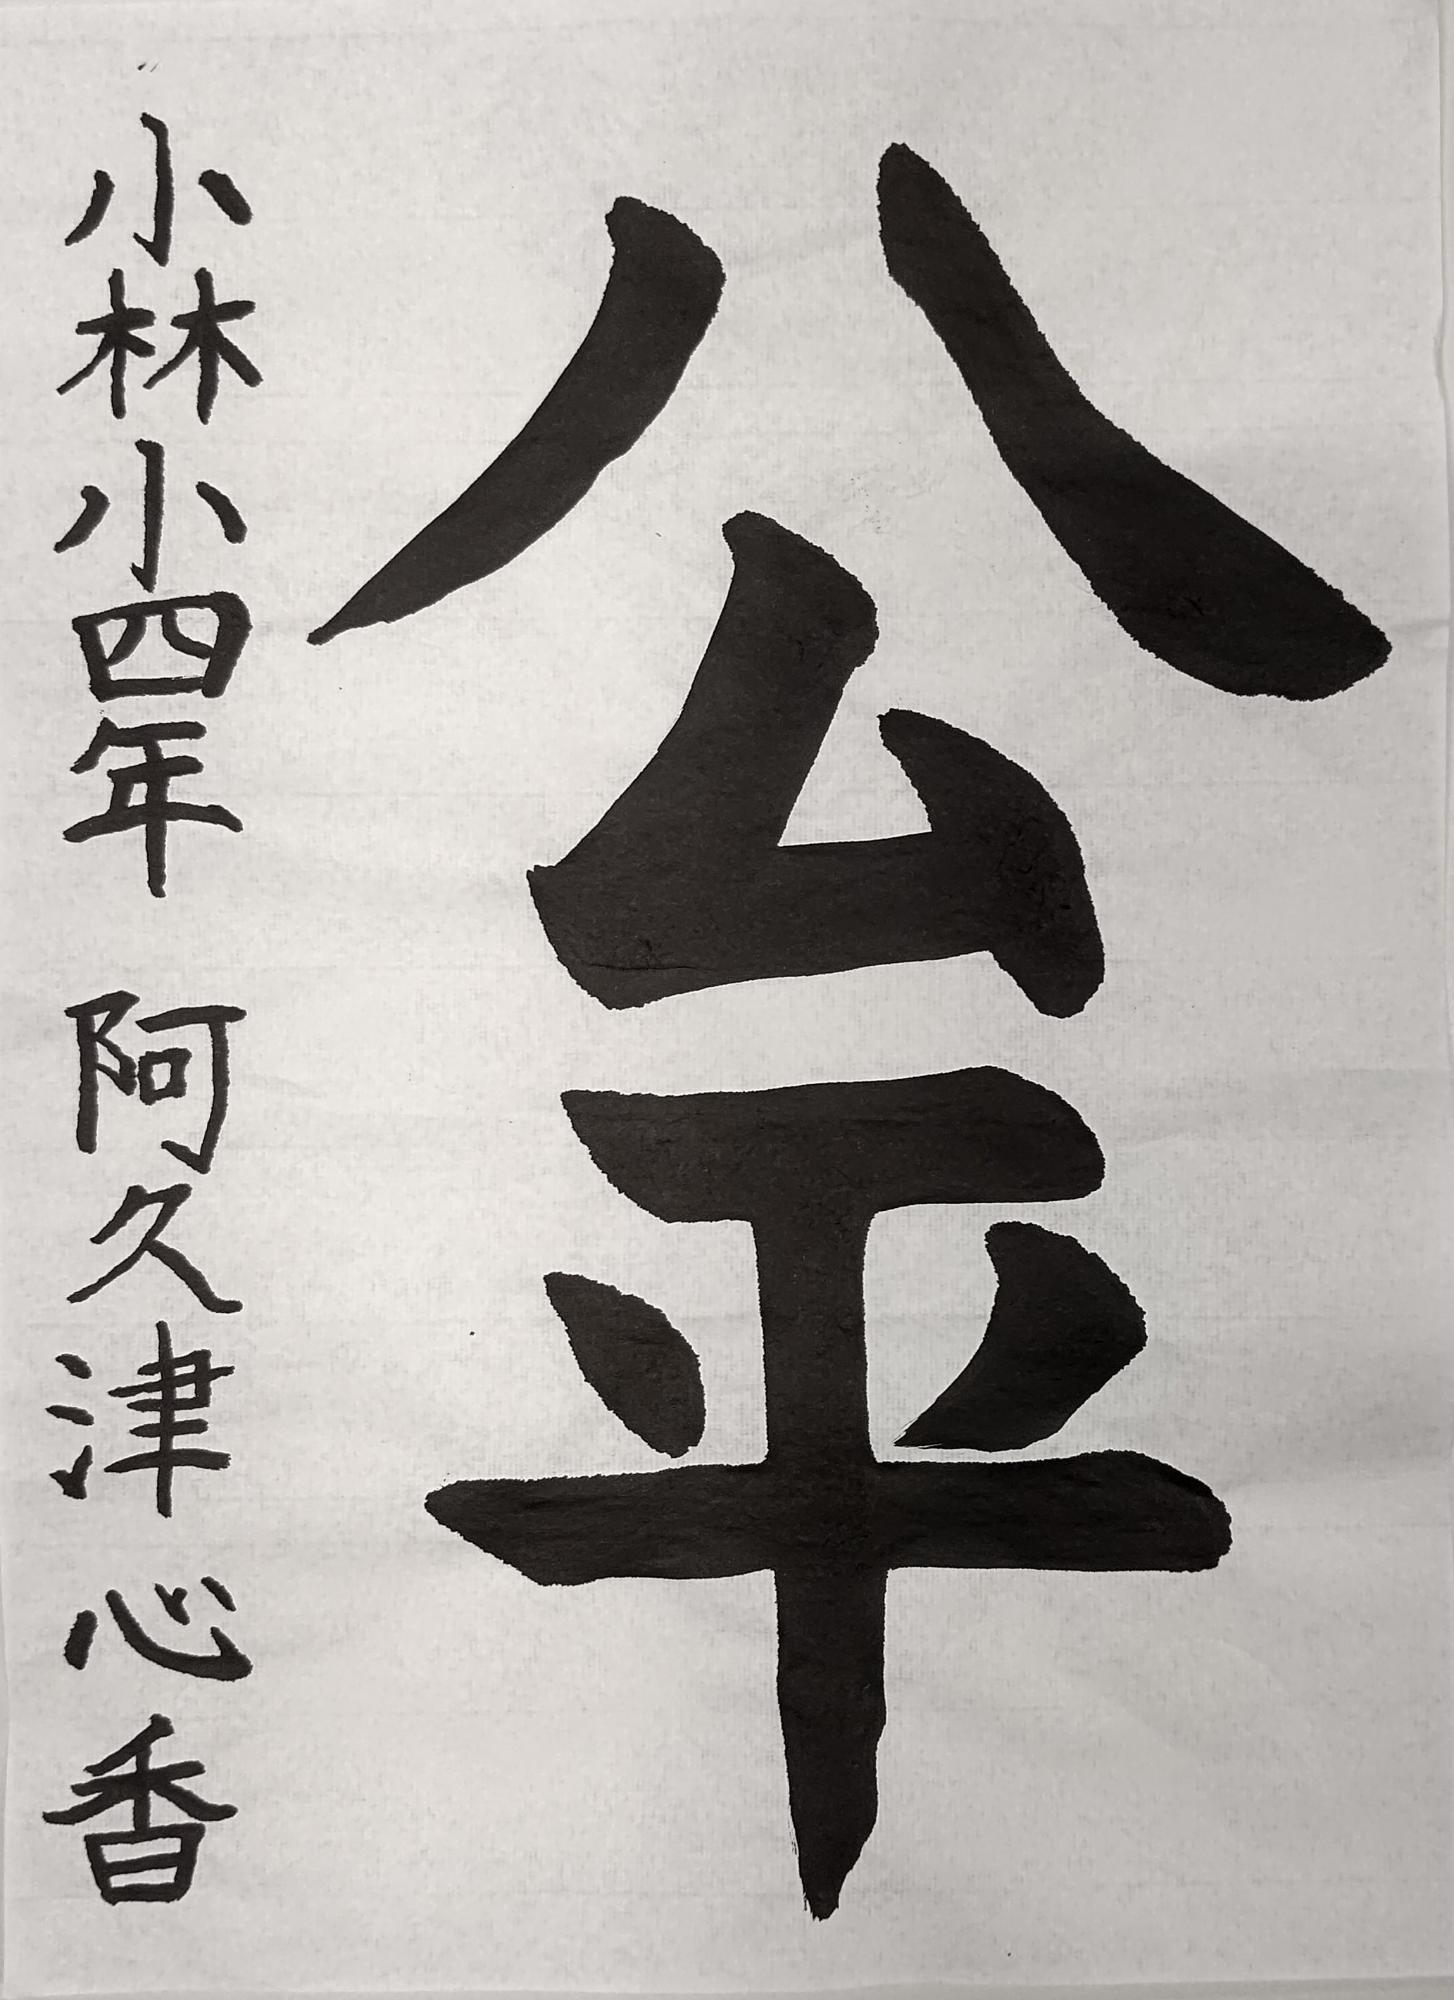 公平
小林小四年 阿久津 心香